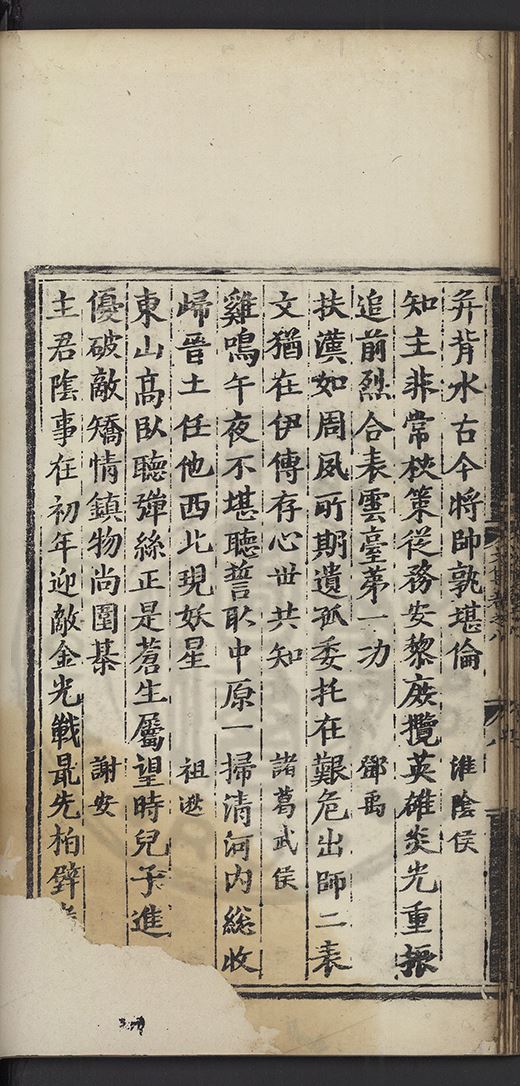 弁背水古今將帥孰堪倫　淮陰侯
知主非常杖策從務安黎庶攬英雄炎光重振
追前烈合表雲臺第一功　鄧禹
扶漢如周夙所期遺孤委托在艱危出師二表
文猶在伊傅存心世共知　諸葛武侯
雞鳴午夜不堪聽誓取中原一掃清河內總收
歸晉土任他西北現妖星　祖逖
東山高臥聽彈絲正是蒼生屬望時兒子進
優破敵矯情鎮物尚圍棊　謝安
主君陰事在初年迎敵金光戰最先柏壁